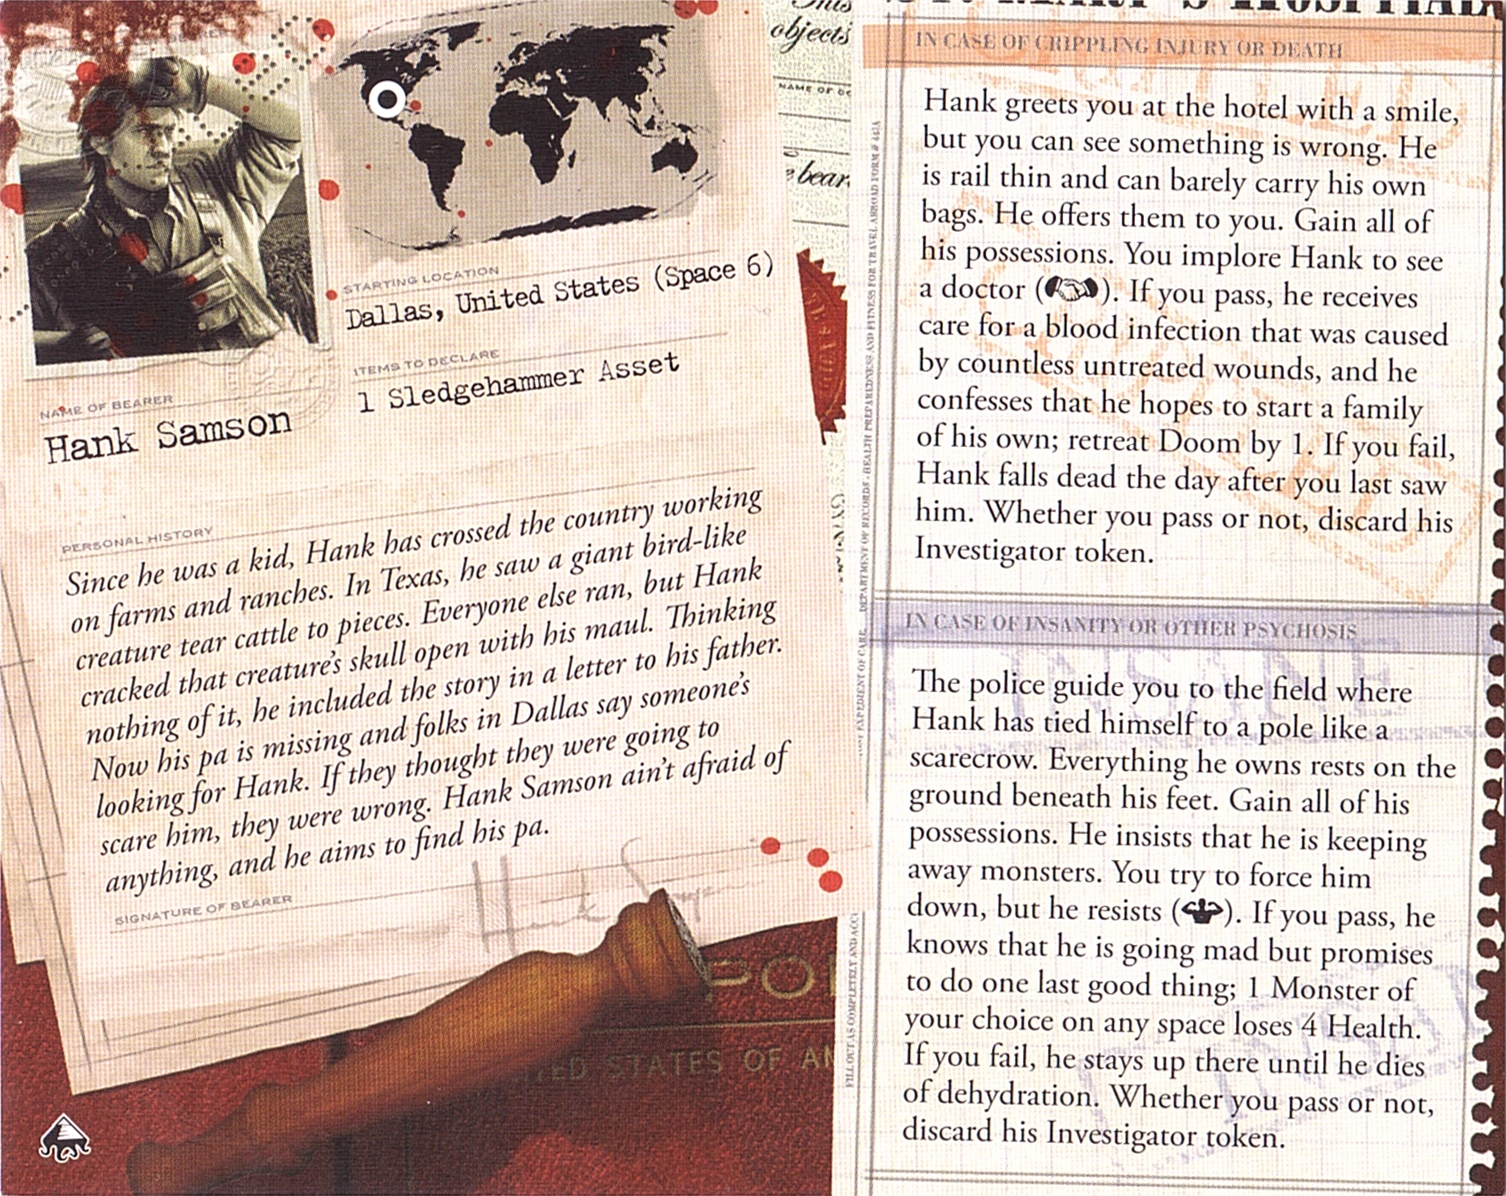 STARTING LOCATION
Dallas, United States (Space 6)
ITEMS TO DECLARE
1 Sledgehammer Asset
NAME OF BEARER
Hank Samson
PERSONAL HISTORY
Since he was a kid, Hank has crossed the country working
on farms and ranches. In Texas, he saw a giant bird-like
creature tear cattle to pieces. Everyone else ran, but Hank
cracked that creature's skull open with his maul. Thinking
nothing of it, he included the story in a letter to his father.
Now his pa is missing and folks in Dallas say someone's
looking for Hank. If they thought they were going to
scare him, they were wrong. Hank Samson ain't afraid of
anything, and he aims to find his pa.
SIGNATURE OF BEARER
UNITED STATES OF AM
objects
NAME OF
bear
IN CASE OF CRIPPLING INJURY OR DEATH
Hank greets you at the hotel with a smile,
but you can see something is wrong. He
is rail thin and can barely carry his own
bags. He offers them to you. Gain all of
his possessions. You implore Hank to see
a doctor ( ). If you pass, he receives
care for a blood infection that was caused
by countless untreated wounds, and he
confesses that he hopes to start a family
of his own; retreat Doom by 1. If you fail,
Hank falls dead the day after you last saw
him. Whether you pass or not, discard his
Investigator token.
IN CASE OF INSANITY OR OTHER PSYCHOSIS
The police guide you to the field where
Hank has tied himself to a pole like a
scarecrow. Everything he owns rests on the
ground beneath his feet. Gain all of his
possessions. He insists that he is keeping
away monsters. You try to force him
down, but he resists ( ). If you pass, he
knows that he is going mad but promises
to do one last good thing; 1 Monster of
your choice on any space loses 4 Health.
If you fail, he stays up there until he dies
of dehydration. Whether you pass or not,
discard his Investigator token.